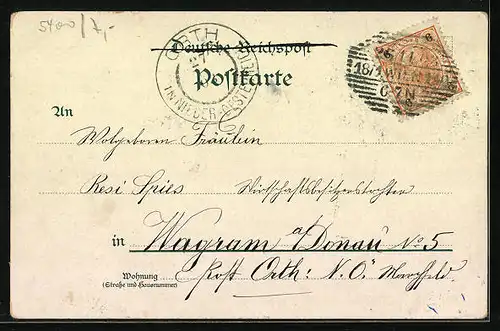 5400 / 7,-
Deutsche Reichspost
Postkarte
ORTH
IN NIEDER-OESTERREICH
18/1 WIEN
6-7N
8
An
Wolgeboren Fräulein
Resi Spies Wirtschaftsbesitzerstochter
in Wagram a/Donau No 5
Post Orth: N. Ö. Marchfeld.
Wohnung
(Straße und Hausnummer)